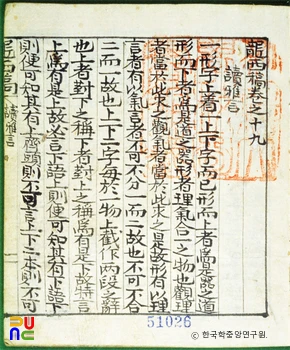 龍西稿卷之十九
讀雅言
一形字上著一上下字而已形而上者爲是器之道
形而下者爲是道之器形者理氣合一之物也觀理
者當於此求之觀氣者當於此求之是故形有以理
言者有以氣言者不可不分一而二故也不可不合
二而一故也上下二字每於一物上截作兩段之辭
也上者對下之稱下者對上之稱爲有是下故必言
上爲有是上故必言下語上則便可知其有下語下
則便可知其有上齊頭則不可言上下二本則不可
讀雅言
51026
© 한국학중앙연구원